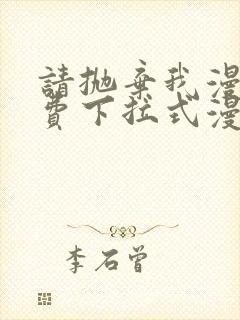 請拋棄我漫
費下拉式漫
李石曾